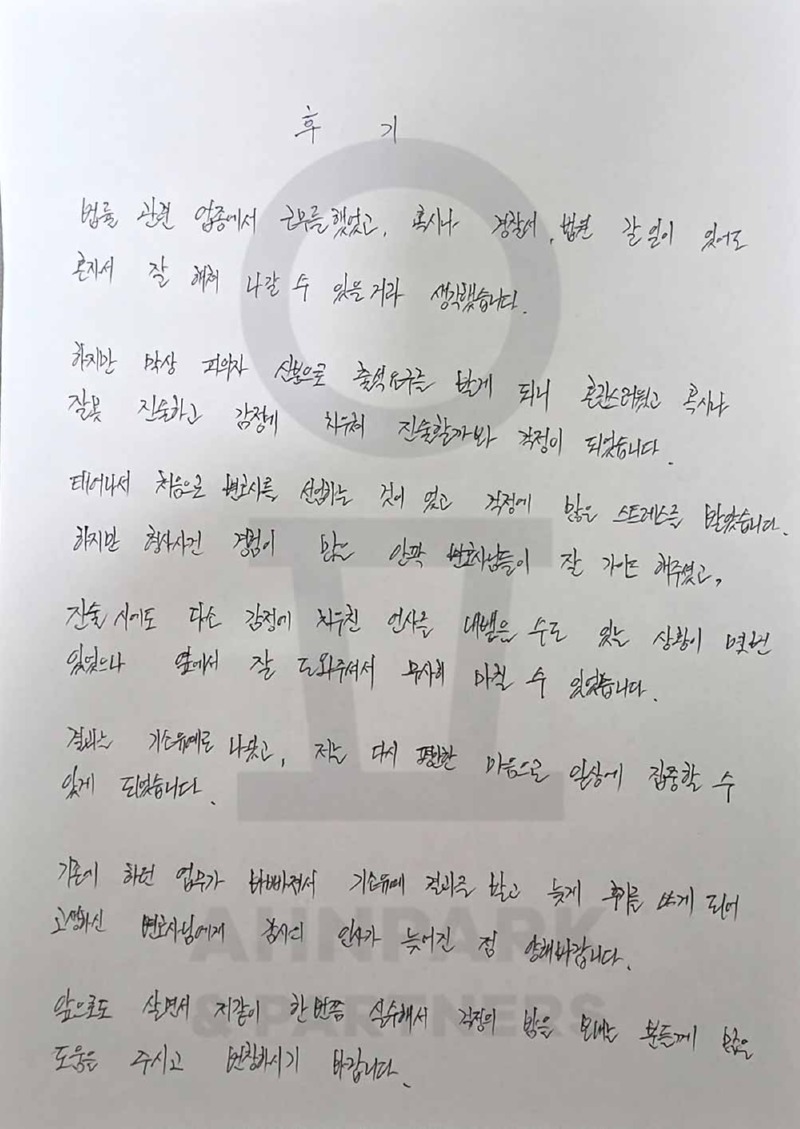 후 기
법률 관련 업종에서 근무를 했었고, 혹시나 경찰서, 법원 갈 일이 있어도
혼자서 잘 해쳐 나갈 수 있을거라 생각했습니다.
하지만 막상 피의자 신분으로 출석요구를 받게 되니 혼란스러웠고 혹시나
잘못 진술하고 감정에 치우쳐 진술할까봐 걱정이 되었습니다.
태어나서 처음으로 변호사를 선임하는 것이 었고 걱정에 많은 스트레스를 받았습니다.
하지만 형사사건 경험이 많은 안팍 변호사님들이 잘 가이드 해주셨고,
진술 시에도 다소 감정에 치우친 언사를 내뱉을 수도 있는 상황이 몇번
있었으나 옆에서 잘 도와주셔서 무사히 마칠 수 있었습니다.
결과는 기소유예로 나왔고, 저는 다시 평안한 마음으로 일상에 집중할 수
있게 되었습니다.
기존에 하던 업무가 바빠져서 기소유예 결과를 받고 늦게 후기를 쓰게 되어
고생하신 변호사님에게 감사의 인사가 늦어진 점 양해바랍니다.
앞으로도 살면서 저같이 한번쯤 실수해서 걱정의 밤을 보내는 분들께 많은
도움을 주시고 번창하시기 바랍니다.
AHNPARK
& PARTNERS